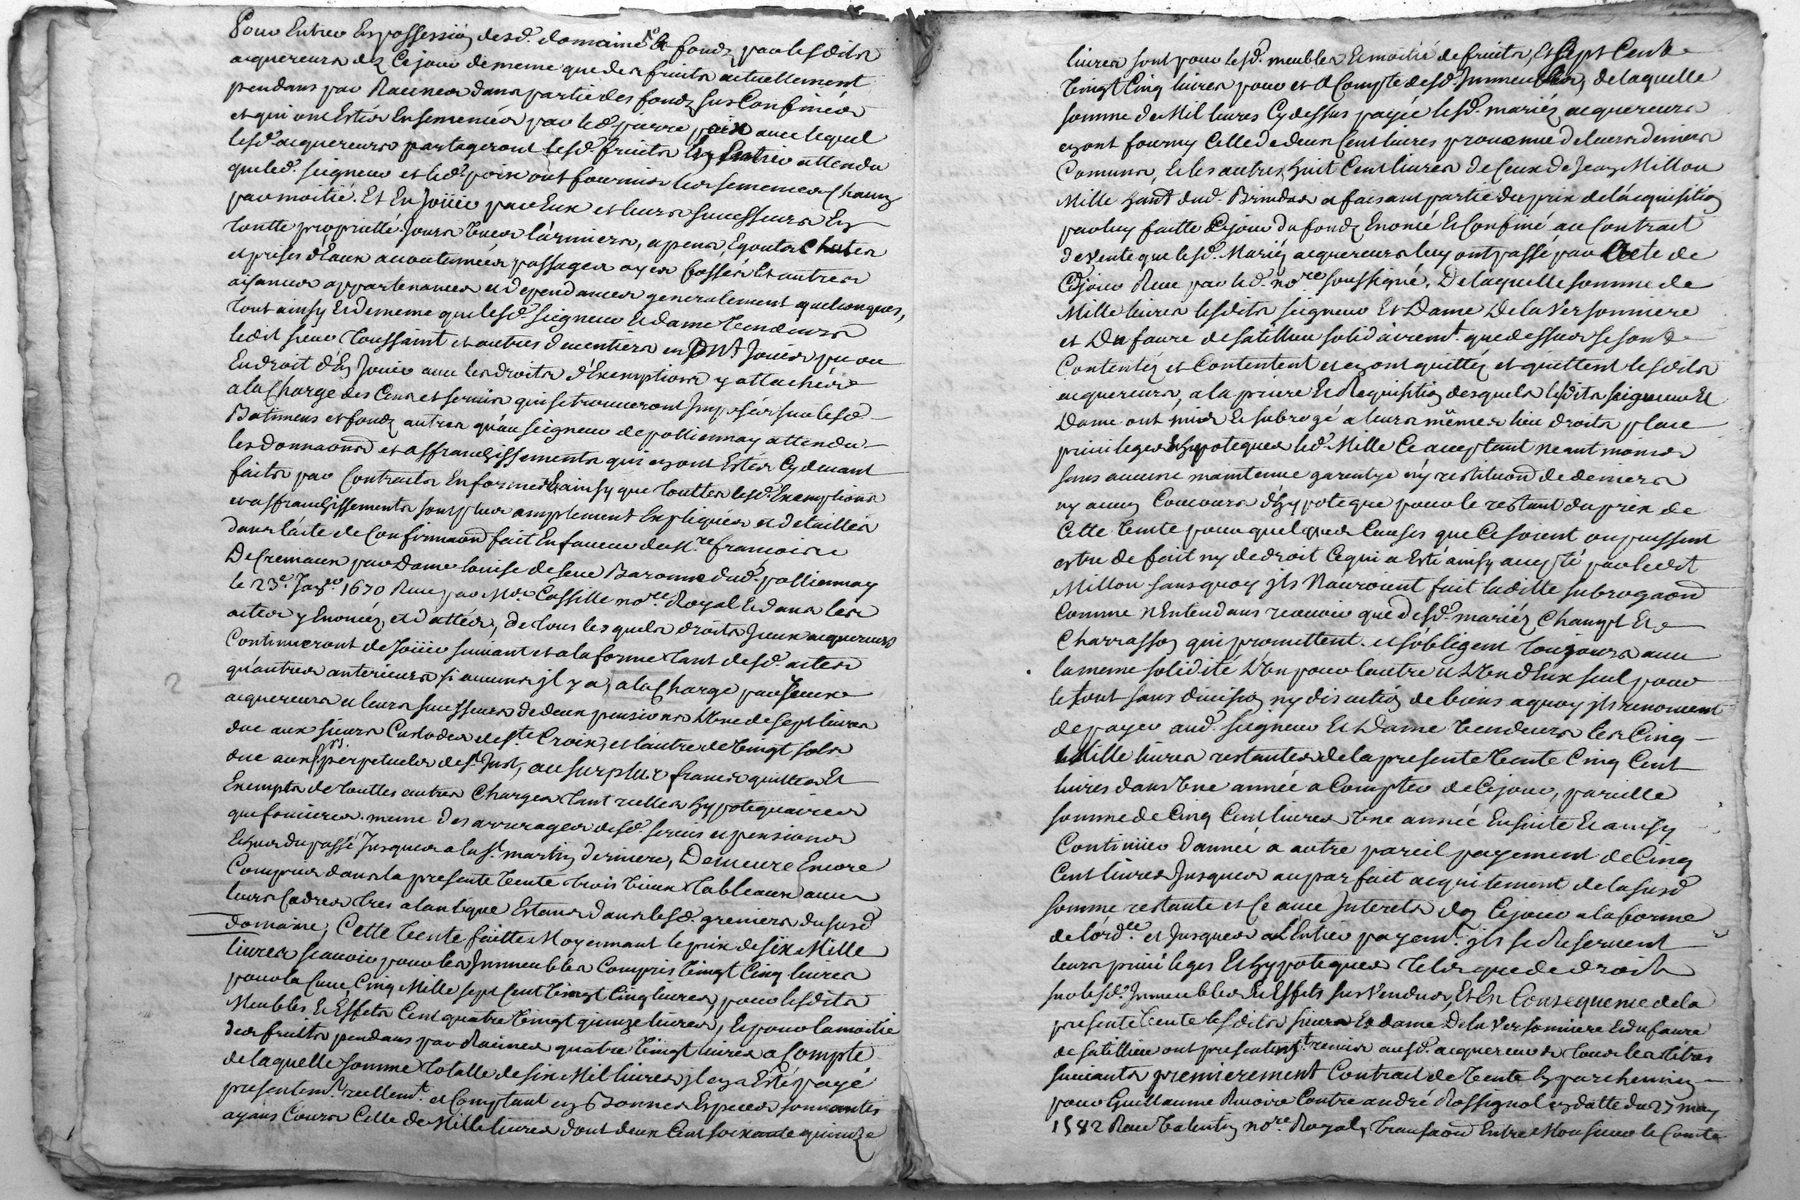 Pour Entrer En possession desd. domaine & fondz par lesdits
acquereurs dez Cejour de meme que des fruits actuellement
pendans par Racines dans partie des fondz sus Confinés
et qui ont Estés Ensemencés par led. pierre poix avec lequel
lesd. acquereurs partageront lesd. fruits Par Entrée attendu
que led. seigneur et led. poix ont fournis les semences Chacun
par moitié. Et En Joüir par Eux et leurs successeurs En
toutte proprietté Jours Vües Larmiers, apens, Egoutz Chutes
et prises d'Eaux accoutumées passages ayes fossés Et autres
aisances appartenances et dependances generalement quelconques,
tout ainsy Et de meme que lesd. seigneur et dame Vendeurs
ledit sieur Toussaint et autres devantiers en ont Jouies pu ou
En droit d'En Jouir avec les droits d'Exemptions y attachées
a la Charge des Cens et servis qui se trouveront Imposés sur lesd.
Batimens et fondz autres qu'au seigneur de pollionnay attendu
les donnaons et affranchissements qui en ont Estés Cy devant
faits par Contraits En formes & ainsy que touttes lesd. Exemptions
et affranchissements sont plus amplement Expliqués et detaillés
dans l'acte de Confirmaon fait En faveur de Mre francoise
De Cremeaux par Dame louise de seve Baronne dud. pollionnay
le 23e. Janv. 1670 Receu par Me. Cassille nore. Royal Et dans les
actes y Enoncés, et dattés, de tous lesquels droits Iceux acquereurs
Continueront de Joüir suivant et a la forme tant desd. actes
qu'autres anterieurs si aucuns Jl y a, a la Charge par Iceux
acquereurs et leurs successeurs de deux pensions L'une de sept livres
due aux sieurs Custodes de Ste. Croix, et l'autre de Vingt sols
due aux perpetuels de St. Just, au surplus francs quittes Et
Exempts de touttes autres Charges tant reelles hypotequaires
que foncieres meme des arrerages desd. servis et pensions
Echus du passé Jusques a la St. martin derniere, Demeure Encore
Compris dans la presente Vente trois Vieux tableaux avec
leurs Cadres tres a l'antique Estans dans lesd. greniers dususd.
domaine, Cette Vente faitte Moyennant le prix de six Mille
livres scavoir pour les Immeubles Compris Vingt Cinq livres
pour la Cuve Cinq Mille sept Cent Vingt Cinq livres, pour lesdits
Meubles Et Effets Cent quatre Vingt quinze livres, Et pour la moitié
des fruits pendans par Racines quatre Vingt livres a Compte
de laquelle somme totalle de six Mil livres, Jl en a Esté payé
presentemt. reellemt. et Comptant en Bonnes Especes sonnantes
ayans Cours Celle de Mille livres dont deux Cent soixante quinze
livres sont pour lesd. meubles Et moitié de fruits, Et Sept Cent
Vingt Cinq livres pour et a Compte desd. Immeubles, de laquelle
somme de Mil livres Cy dessus payée lesd. mariés acquereurs
en ont fourny Celle de deux Cent livres provenüe de leurs deniers
Comuns, Et les autres huit Cent livres de Ceux de Jean Millon
Mille hant. dud. Brindas a faisant partie du prix de l'acquisition
par luy faitte Cejour du fondz Enoncé Et Confiné au Contrait
de Vente que lesd. Mariés acquereurs luy ont passé par Acte de
Cejour Receu par led. nore soussigné, De laquelle somme de
Mille livres lesdits seigneur Et Dame De la Versonniere
et Du faure de satillieu solidairemt. que dessus se sont
Contentés et Contentent et en ont quittés et quittent lesdits
acquereurs, a la priere Et Requisition desquels lesdits seigneur Et
Dame ont mis Et subrogé a leurs mêmes lieu droits place
privileges & hypoteques led. Mille Ce acceptant neantmoins
sans aucune maintenue garentye n'y restitution de deniers
ny aucun Concours d'hypoteque pour le restant du prix de
Cette Vente pour quelques Causes que Ce soient ou puissent
estre de fait ny de droit Ce qui a Esté ainsy accepté par ledt
Millon sans quoy Jls N'auroient fait laditte subrogaon
Comme N'Entendans recevoir que desd. mariés Changt Et
Charrasson qui promettent et s'obligent toujours avec
la meme solidité L'un pour l'autre et L'un d'Eux seul pour
le tout sans division ny discution de biens a quoy Jls renoncent
de payer aud. seigneur Et Dame Vendeurs les Cinq
Mille livres restantes de la presente Vente Cinq Cent
livres dans Une année a Compter de Cejour, pareille
somme de Cinq Cent livres Une année En suite Et ainsy
Continüer d'année a autre pareil payement de Cinq
Cent livres Jusques au parfait acquittement de la susd.
somme restante et Ce avec Interets dez Cejour a la forme
de l'ordce. et Jusques a L'Entier payemt. Jls se Reservent
leurs privileges Et hypoteques telz que de droit
sur lesd. Immeubles Et Effets sus Vendus, Et En Consequence de la
presente Vente lesdits sieurs Et dame De la Versonniere Et du faure
de satillieu ont presentemt. remis auxd. acquereurs tous les titres
suivants premierement Contrait de Vente En parchemin
pour Guillaume Revoire Contre andré Rossignol en datte du 27 may
1582 Receu Valentin nore. Royal, transaon Entre Monsieur le Comte